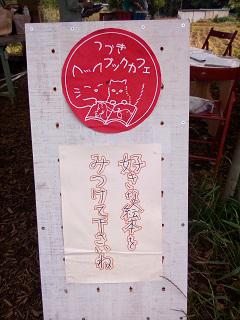 つづき
ブックカフェ
好きな絵本を
みつけて下さいね